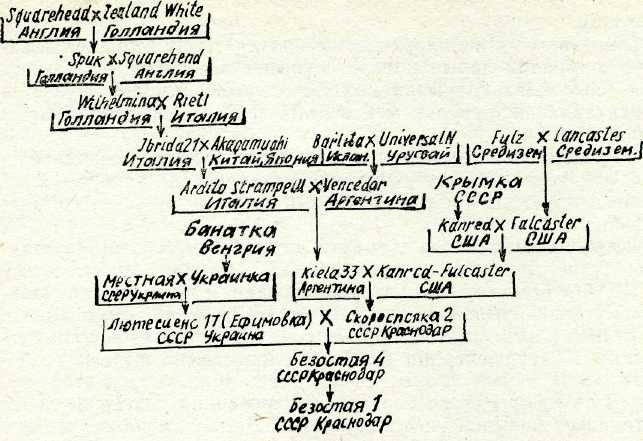 Squarehead x Zealand White
Англия Голландия
Spик x Squarehend
Голландия Англия
Wilhelmina x Rieti
Голландия Италия
Jbrida21 x Akagamughi Barlita x UniversalN Fulz x Lancastes
Италия Китай, Япония Испан. Уругвай Средизем Средизем.
Ardito Strampelli x Vencedar Крымка
Италия Аргентина СССР
Банатка Kanred x Fulcaster
Венгрия США США
Местная x Украинка Kiela33 x Kanred-Fulcaster
СССР Украина Аргентина США
Лютесценс 17 (Ефимовка) x Скороспелка 2
СССР Украина СССР Краснодар
Безостая 4
СССР Краснодар
Безостая 1
СССР Краснодар